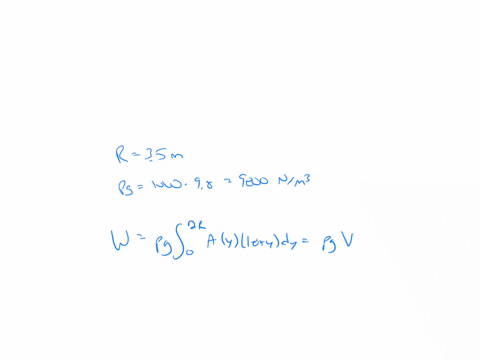 R = 3.5 m
ρg = 1000 · 9.8 = 9800 N/m³
W = ρg ∫₀²ᴿ A(y)(10+y)dy = ρg V